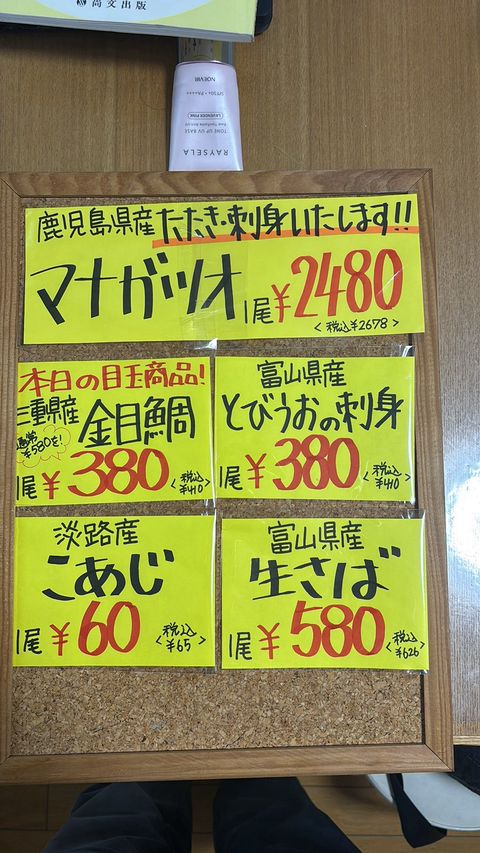 尚文出版
RAYSELA
TONE UP UV BASE
LAVENDER PINK
SPF50+・PA++++
NOEVIR
鹿児島県産たたき・刺身いたします!!
マナガツオ
1尾¥2480
<税込¥2678>
本日の目玉商品!
三重県産
金目鯛
通常¥580を!
1尾¥380
<税込¥410>
富山県産
とびうおの刺身
1尾¥380
<税込¥410>
淡路産
こあじ
1尾¥60
<税込¥65>
富山県産
生さば
1尾¥580
<税込¥626>